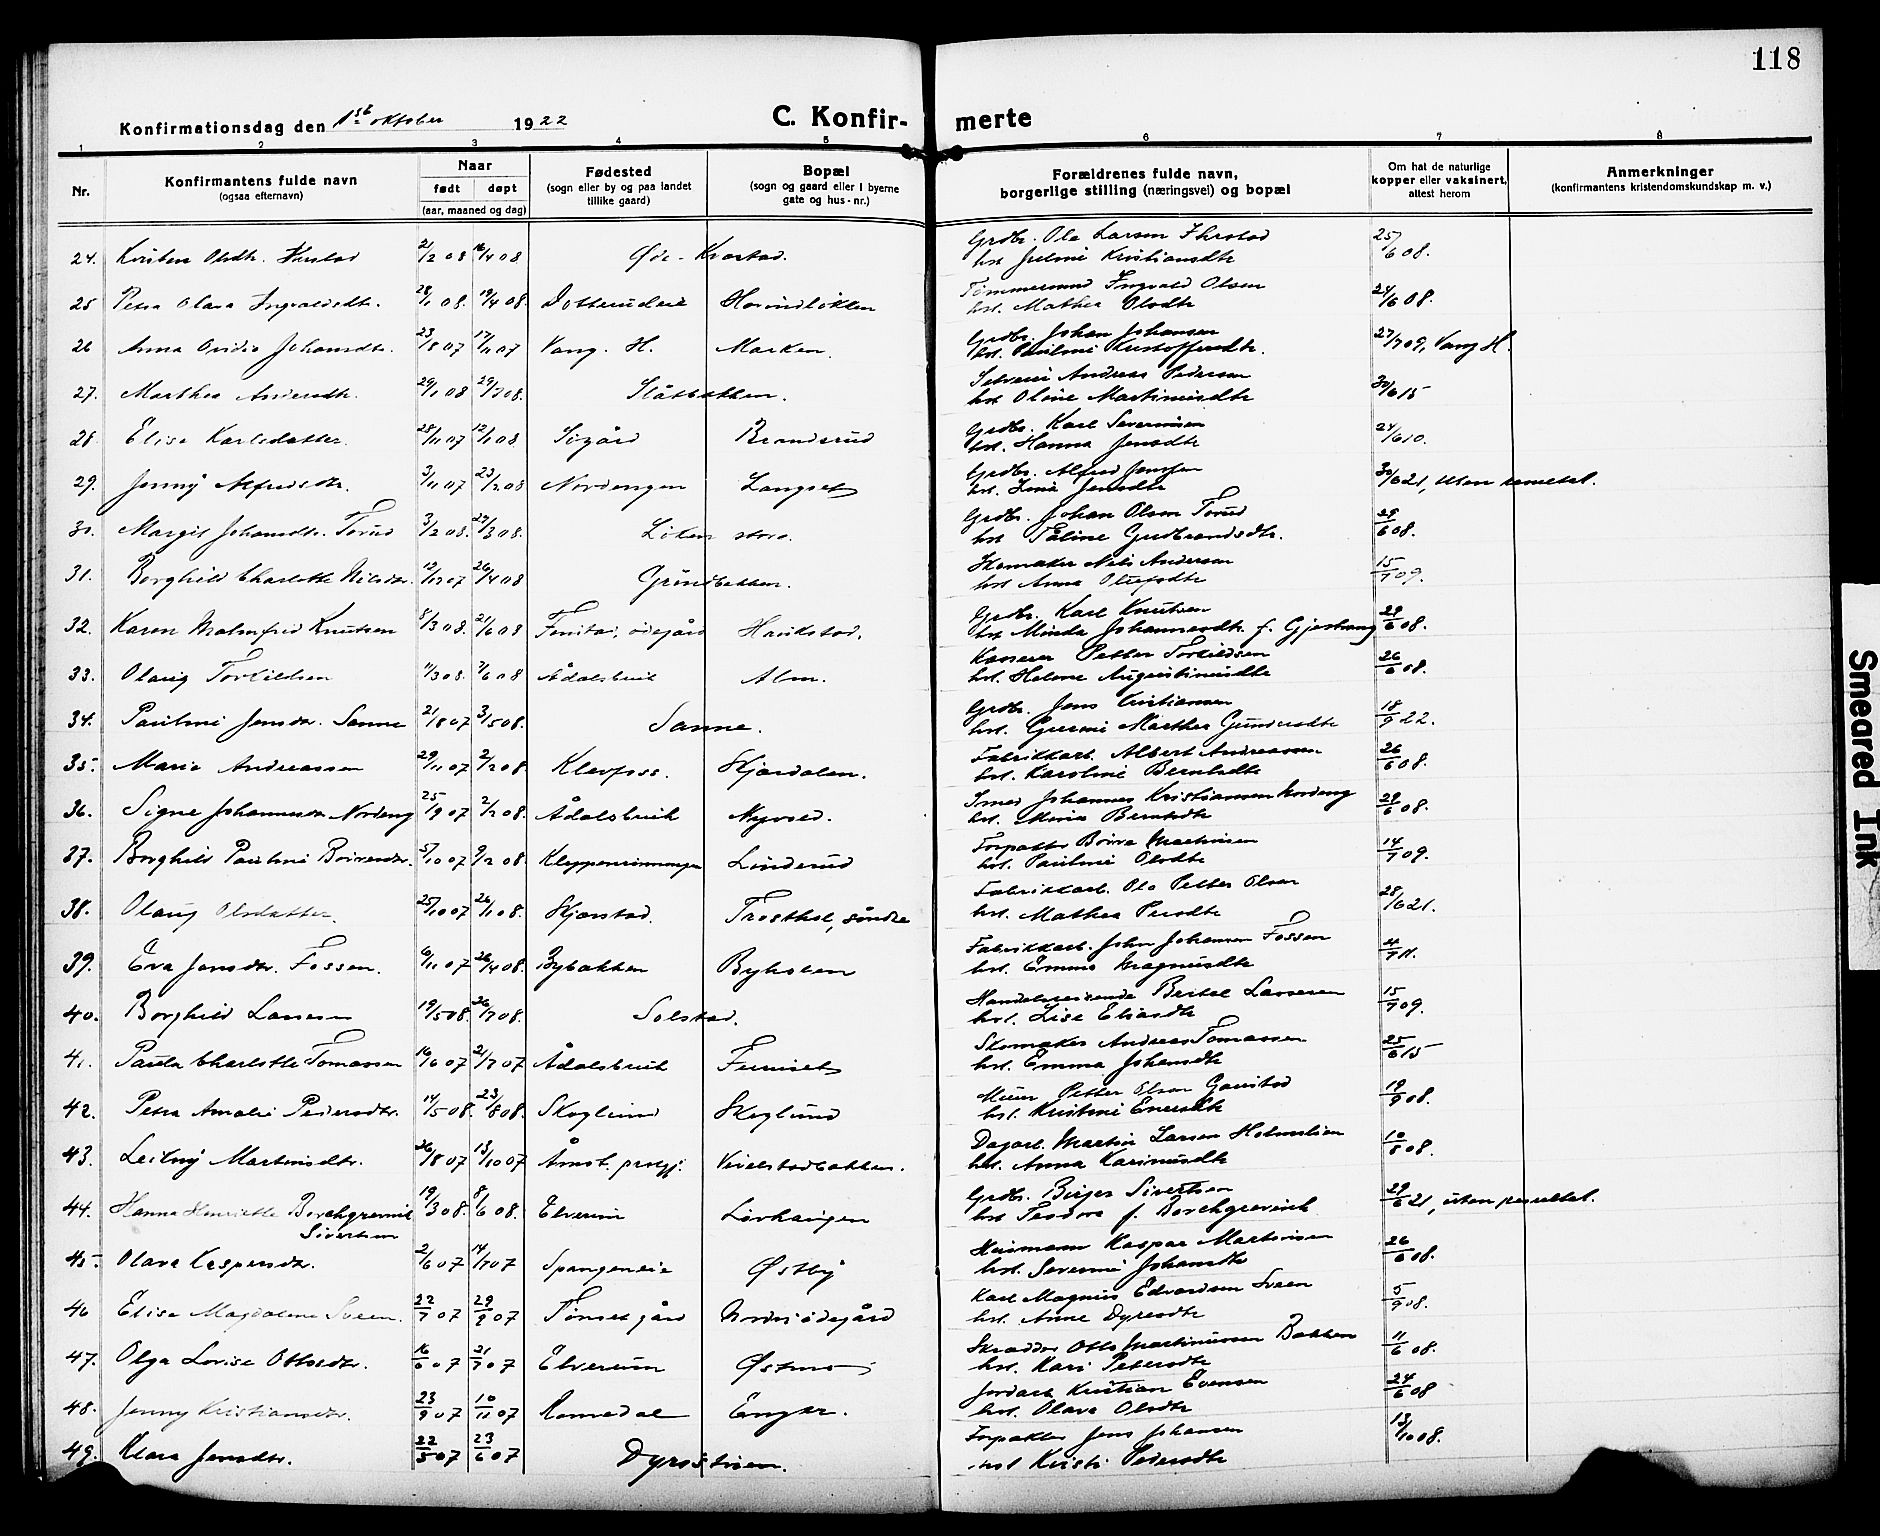 118
Konfirmationsdag den 1ste oktober 1922 C. Konfir- merte
1 2 3 4 5 6 7 8
Nr. Konfirmantens fulde navn (ogsaa efternavn) Naar født døpt (aar, maaned og dag) Fødested (sogn eller by og paa landet tillike gaard) Bopæl (sogn og gaard eller i byerne gate og hus-nr.) Forældrenes fulde navn, borgerlige stilling (næringsvei) og bopæl Om hat de naturlige kopper eller vaksinert, attest herom Anmerkninger (konfirmantens kristendomskundskap m. v.)
24. Kristen Olsdtr. 21/2 08 16/4 08 Kvarstad. Grdbr. Ola Larsen hst Kristiansdtr 25/6 08.
25 Petra Olava Ingvaldsdtr. 28/1 08. 19/4 08 Hovindløkken Tømmermand Ingvald Olsen hst. Mathea Olsdtr 24/6 08.
26 Anna Ovidia Johansdtr. 23/8 07 17/11 07 Vang. H. Marken. Grdbr. Johan Johansen hst. Pauline Kristoffersdtr. 27/7 09, Vang H.
27. Marthea Andersdtr. 29/1 08 29/3 08. Slåtbakken. Andreas Pedersen hst Oline Martinusdtr 30/6 15
28. Elise Karlsdatter. 28/11 07 12/1 08 Sigård Brandsrud Grdbr. Karl Severinsen hst. Hanna Jensdtr 24/6 10.
29. Jenny Alfredsdtr. 3/11 07 23/2 08 Nordengen Langset Grdbr. Alfred Jensen hst. Lina Jensdtr 30/6 21, uten resultat.
30. Margit Johansdtr. Torud 3/2 08. 29/3 08. Løken store. Grdbr. Johan Olsen Torud hst Gudbrandsdtr. 29/6 08.
31. Borghild Charlotte Nilsdtr. 12/12 07 26/4 08 Gründbakken. Skomaker Nils Andersen hst. Anna Olufsdtr 15/7 09.
32. Karen Malmfrid Knutsen 8/3 08. 21/6 08 ødegård Havikstad. Grdbr. Karl Knutsen hst Minda Johannesdtr. f. Gjestvang 29/6 08.
33. Olaug Torkildsen 11/3 08. 7/6 08 Ådalsbruk Alm. Kasserer Petter Torkildsen hst. Helene Augustinusdtr 26/6 08.
34. Pauline Jensdtr. Sanne 21/8 07 3/5 08. Sanne. Grdbr. Jens Kristiansen hst. Marthea Gundersdtr 18/9 22.
35. Marie Andreassen 29/11 07 2/2 08. Klevfoss. Skjærdalen. Fabrikkarb. Albert Andreassen hst. Karoline Berntsdtr 26/6 08.
36. Signe Johannesdtr Nordeng 25/9 07 2/2 08. Ådalsbruk Nyvold. Smed Johannes Kristiansen Nordeng hst. Maria Berntsdtr 29/6 08.
37. Borghild Pauline Børresdtr. 5/10 07 9/2 08. Linderud Forpakter Børre Martinsen hst. Pauline Olsdtr 14/7 09.
38. Olaug Olsdatter. 25/10 07 26/1 08. Skjærstad. Frosthol, søndre Fabrikkarb. Ole Petter Olsen hst. Mathea Persdtr 28/6 21.
39. Eva Jensdtr. Fossen. 6/11 07 26/4 08. Bybakken Byholen Fabrikkarb. John Johansen Fossen hst. Emma Magnusdtr 4/7 11.
40. Borghild Larssen 19/5 08. 26/7 08. Solstad. Handelsreisende Bertel Larssen hst. Lise Eliasdtr 15/7 09.
41. Paula Charlotte Tomassen 16/6 07 21/7 07 Ådalsbruk Furuset Skomaker Andreas Tomassen hst. Emma Johansdtr 25/6 15
42. Petra Amalie Pedersdtr. 14/5 08. 23/8 08. Skoglund Skoglund Murer Petter Olsen Gaustad hst. Kristine Enersdtr 19/9 08.
43. Leikny Martinsdtr. 26/8 07 13/10 07 Åmot prestgj. Kvelstadbakken. Dagarb. Martin Larsen Holmslien hst. Anna Karinusdtr 10/8 08.
44. Hanna Henriette Borchgrevink Sivertsen 19/3 08. 8/6 08. Elverum Løvhaugen Grdbr. Birger Sivertsen hst Teodora f. Borchgrevink 29/6 21, uten resultat.
45 Olava Kaspersdtr. 2/6 07 14/7 07 Spangeneie Østby Husmann Kaspar Martinsen hst. Severine Johansdtr 26/6 08.
46 Elise Magdalena Sveen. 22/7 07 29/9 07 Tønset gård Nordsjødegård Karl Magnus Edvardsen Sveen hst. Anne Dyresdtr 5/9 08.
47. Olga Lovise Ottosdtr. 16/6 07 21/7 07 Elverum Østmo Skrædder Otto Martinussen Bakken hst. Kari Petersdtr 11/6 08.
48. Jenny Kristiansdtr. 23/9 07 10/11 07 Romedal Enger. Jordarb Kristian Evensen hst. Olava Olsdtr 24/6 08
49. Klara Jensdtr. 22/5 07 23/6 07 Forpakter Jens Johansen hst Kristi Pedersdtr 13/10 08.
Smeared Ink